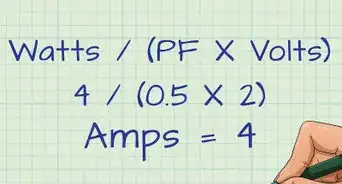 Watts / (PF X Volts)
4 / (0.5 X 2)
Amps = 4